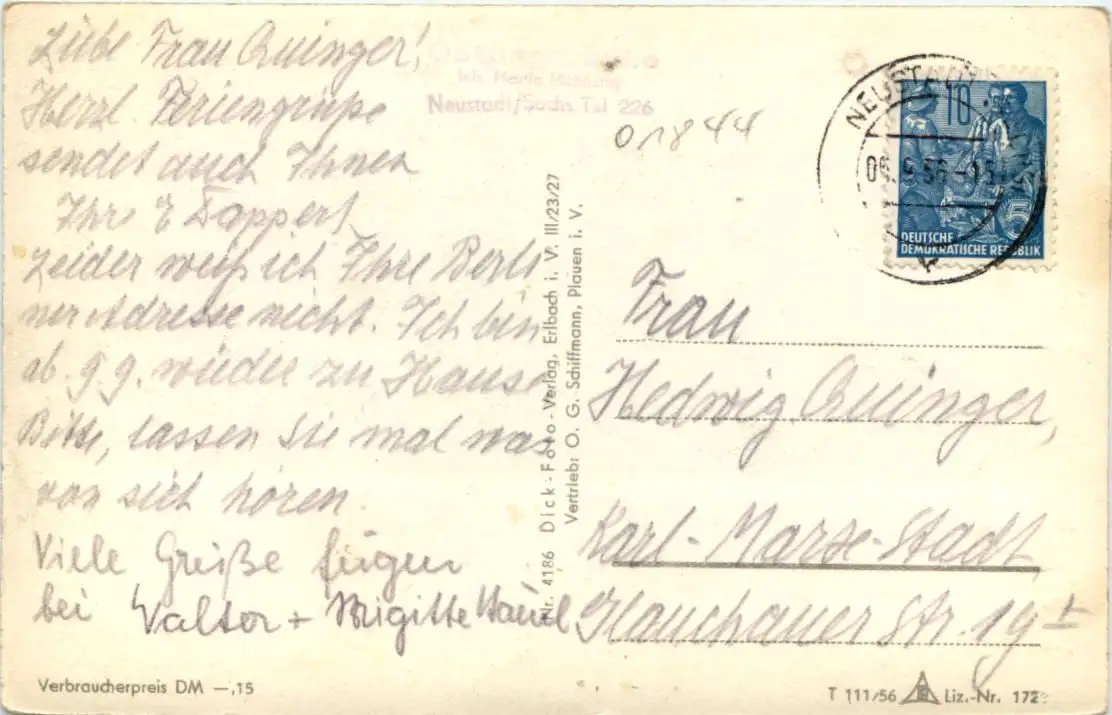 Liebe Frau Quinger!
Herzl. Feriengrüße
sendet auch Ihnen
Ihr E Tappert
Leider weiß ich Ihre Berli
ner Adresse nicht. Ich bin
ab 9.9. wieder zu Hause
Bitte, lassen Sie mal was
von sich hören.
Viele Grüße fügen
bei Walter + Brigitte
Inh. Martin
Neustadt/Sachs. Tel 226
01844
Nr. 4186 Dick-Foto-Verlag, Erlbach i. V. III/23/27
Vertrieb: O. G. Schiffmann, Plauen i. V.
NEUSTADT
10
5
DEUTSCHE
DEMOKRATISCHE REPUBLIK
Frau
Hedwig Quinger,
Karl-Marx-Stadt
Glauchauer Str. 19 I
Verbraucherpreis DM —,15
T 111/56 Liz.-Nr. 172